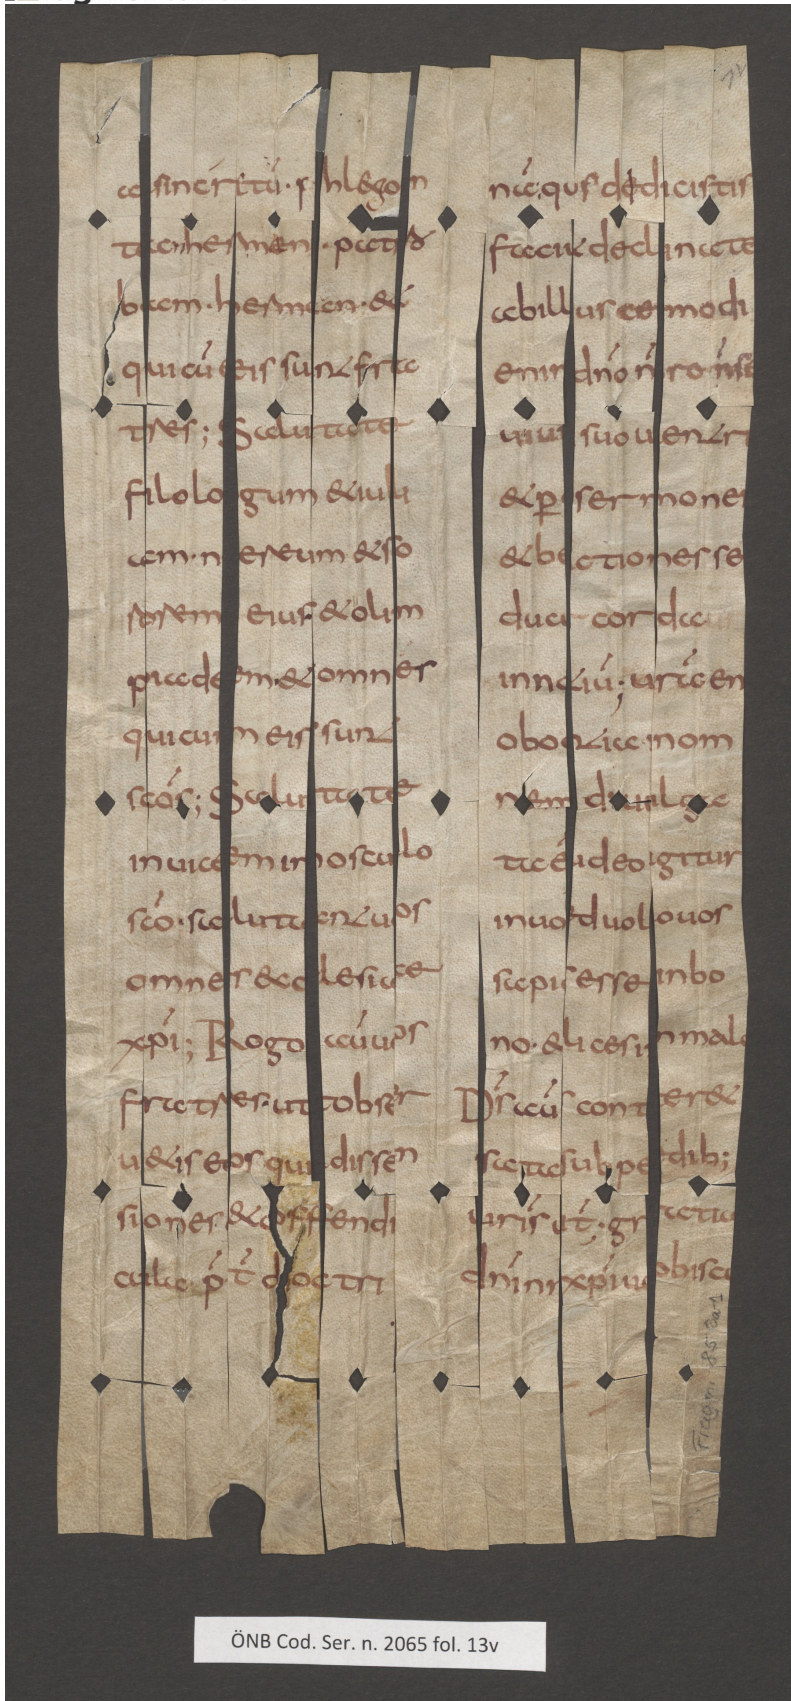 a sincritū · phlegon
tam hermen · patro
bam · herman · &
qui cū eis sunt fra
tres ; Salutate
filologum & iuli
am · nereum & so
rorem eius & olim
piadem · & omnes
qui cum eis sunt
scōs ; Salutate
inuicem in osculo
scō · salutant uos
omnes ecclesiae
xp̄i ; Rogo aū uos
fratres · ut obser
u&is eos qui dissen
siones & offendi
cula p̄t doctri
nā qus dedicistis
declinate
ab illiuscemodi
eni dn̄o nro n̄ se
suo uentri
& p̱ sermone
& be ctiones se
duci corda
urā en
obo & ia in om
nem diuulga
ta ē
in uob uolo uos
sapi esse in bo
no · & in malo
Dr̄ aū conter &
sata sub pedib ;
uris gratia
dn̄i nr xp̄i uobiscū
Fragm. 85 2a-1
ÖNB Cod. Ser. n. 2065 fol. 13v